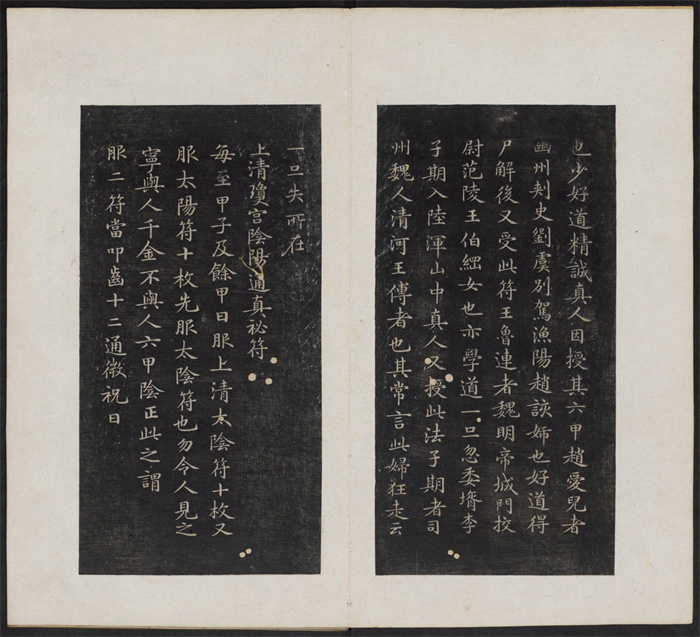 也少好道精誠真人因授其六甲趙愛兒者
幽州刾史劉虞別駕漁陽趙該婦也好道得
尸解後又受此符王魯連者魏明帝城門挍
尉范陵王伯綱女也亦學道一旦忽委壻李
子期入陸渾山中真人又授此法子期者司
州魏人清河王傳者也其常言此婦狂走云
一旦失所在
上清瓊宮陰陽通真祕符
每至甲子及餘甲日服上清太陰符十枚又
服太陽符十枚先服太陰符也勿令人見之
寧與人千金不與人六甲陰正此之謂
服二符當叩齒十二通微祝曰